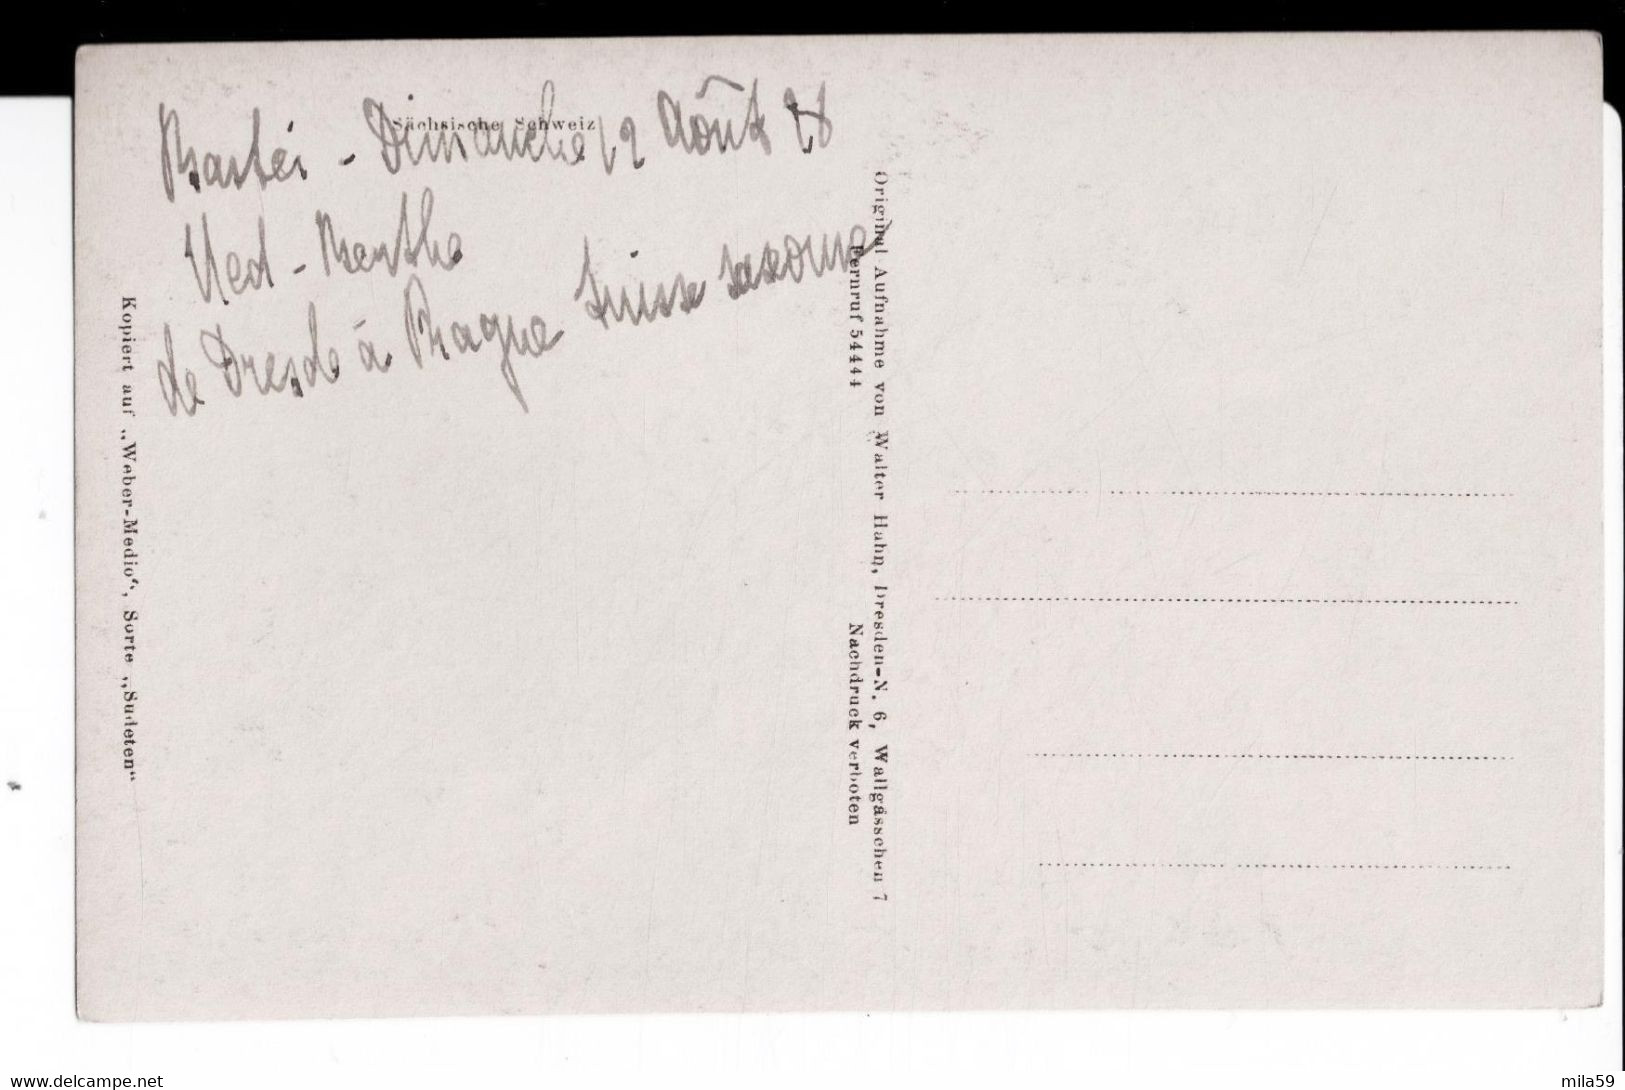 Sächsische Schweiz
Bastei - Dimanche 12 Août 28
de Dresde à Prague Suisse saxonne
Kopiert auf „Weber-Medio“, Sorte „Sudeten“
Original Aufnahme von Walter Hahn, Dresden-N. 6, Wallgässchen 7
Fernruf 54444 Nachdruck verboten
www.delcampe.net
mila59